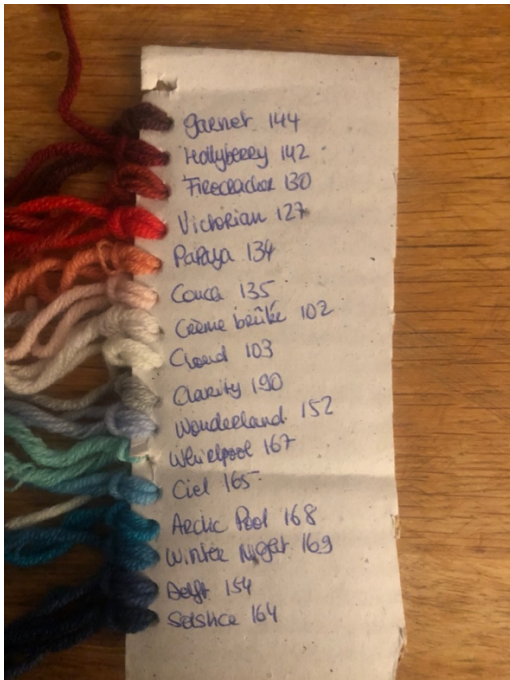 garnet 144
Hollyberry 142
Firecracker 130
Victorian 127
Papaya 134
Conca 135
Crème brûlée 102
Cloud 103
Clarity 190
Wonderland 152
Whirlpool 167
Ciel 165
Arctic Pool 168
Winter Night 169
Delft 154
Solstice 164